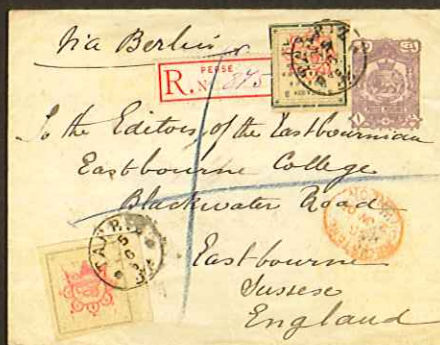 Via Berlin
PERSE
R. No 875
To the Editors of the Eastbournian
Eastbourne College
Blackwater Road
Eastbourne
Sussex
England